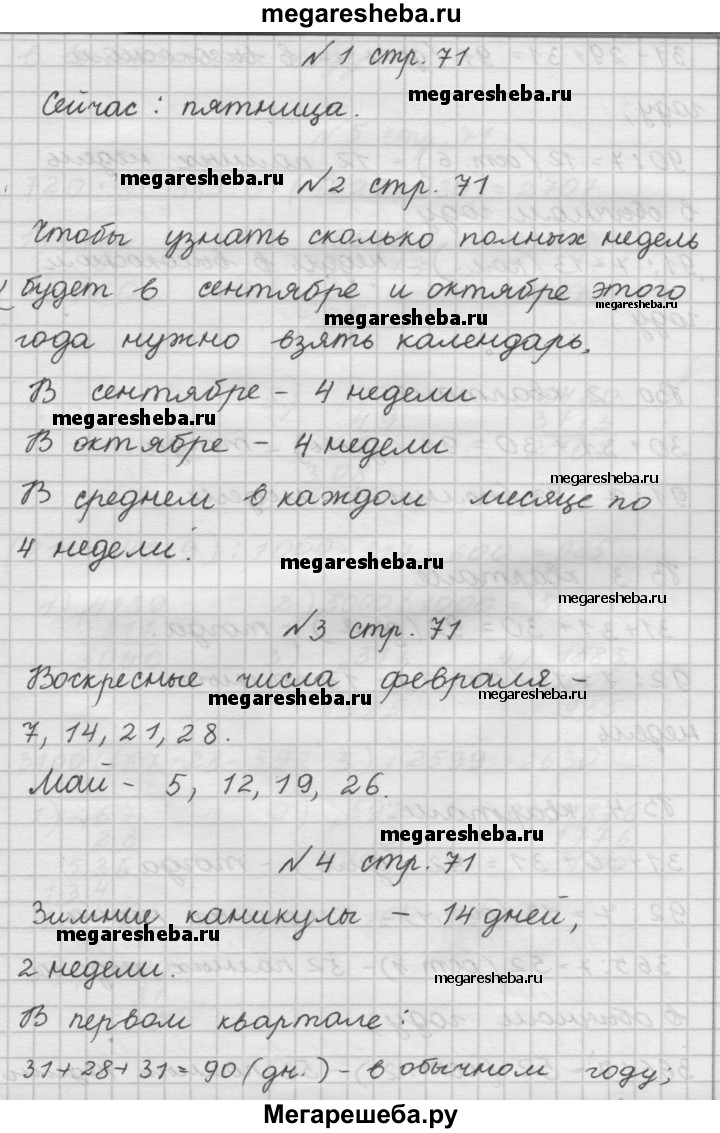 megaresheba.ru
№1 стр. 71
Сейчас: пятница.
megaresheba.ru
megaresheba.ru
№2 стр. 71
Чтобы узнать сколько полных недель
будет в сентябре и октябре этого
megaresheba.ru
megaresheba.ru
года нужно взять календарь.
В сентябре - 4 недели
megaresheba.ru
В октябре - 4 недели
megaresheba.ru
В среднем в каждом месяце по
4 недели.
megaresheba.ru
megaresheba.ru
№3 стр. 71
Воскресные числа февраля -
megaresheba.ru
megaresheba.ru
7, 14, 21, 28.
Май - 5, 12, 19, 26.
megaresheba.ru
№4 стр. 71
Зимние каникулы - 14 дней,
megaresheba.ru
2 недели.
megaresheba.ru
В первом квартале:
31+28+31=90(дн.) - в обычном году;
Мегарешеба.ру